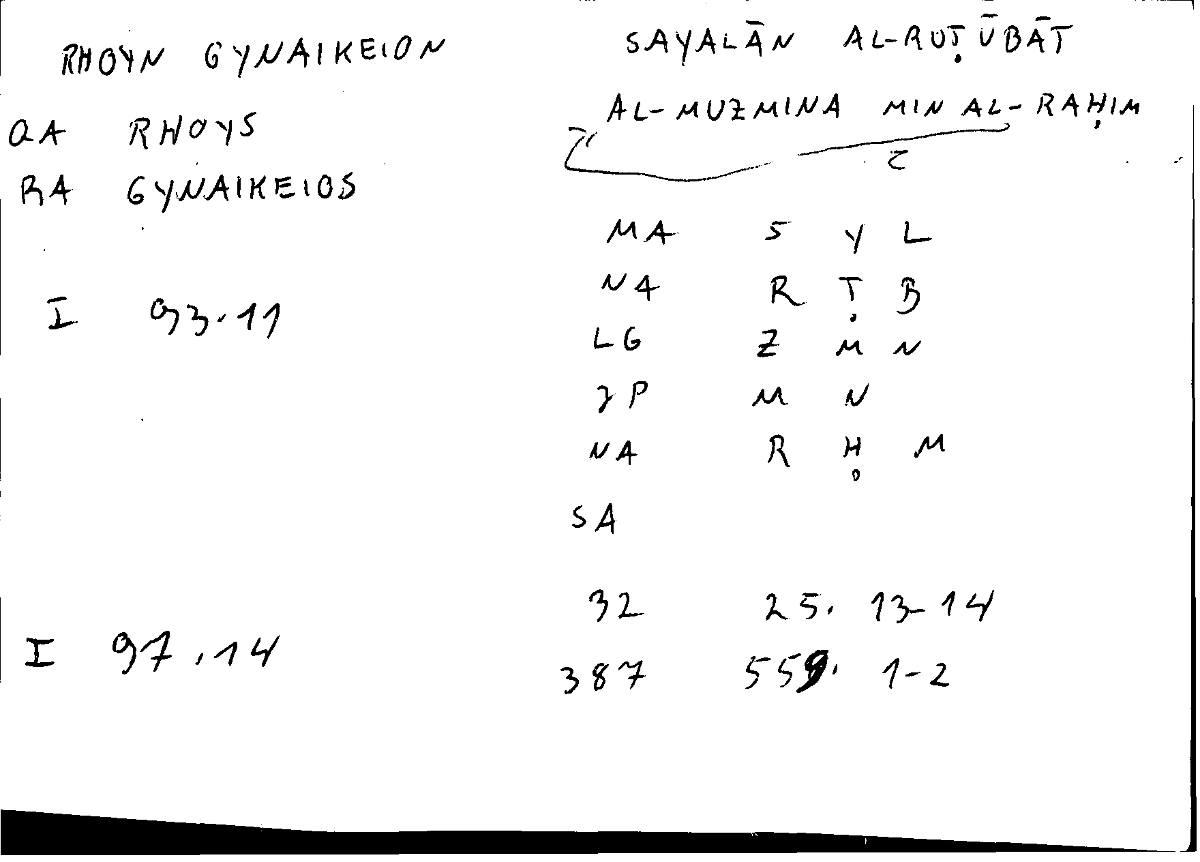 RHOYN GYNAIKEION
QA RHOYS
RA GYNAIKEIOS
I 93.11
I 97.14
SAYALĀN AL-RUṬŪBĀT
AL-MUZMINA MIN AL-RAḤIM
MA S Y L
NA R Ṭ B
LG Z M N
P M N
NA R Ḥ M
SA
32 25. 13-14
387 559. 1-2